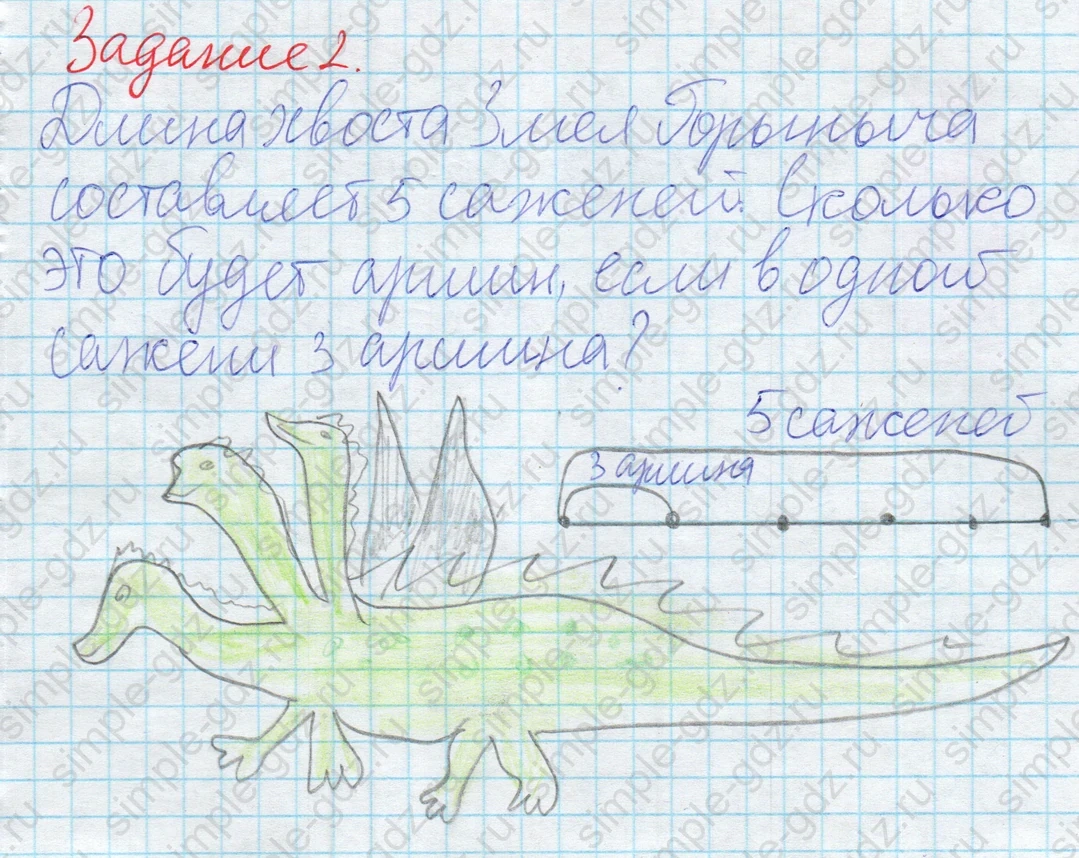 Задание 2.
Длина хвоста Змея Горыныча
составляет 5 саженей. Сколько
это будет аршин, если в одной
сажени 3 аршина?
5 саженей
3 аршина
simple-gdz.ru